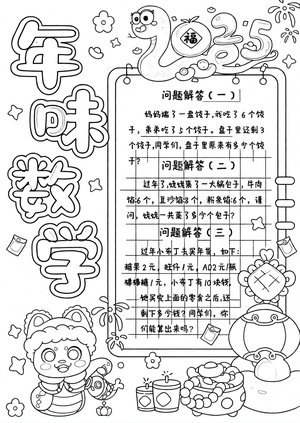 年味数学
福
2025
问题解答(一)
妈妈端了一盘饺子,我吃了6个饺
子,弟弟吃了5个饺子,盘子里还剩3
个饺子,同学们,盘子里原来有多少个饺
子?
问题解答(二)
过年了,姥姥蒸了一大锅包子,牛肉
馅6个,豆沙馅3个,粉条馅6个,请
问,姥姥一共蒸了多少个包子?
问题解答(三)
过年小布丁去买年货,如下:
糖果2元,旺仔1元,AD2元/瓶
棒棒糖1元,小布丁有10块钱,
她买完上面的零食之后,还
剩下多少钱?同学们,你
们能算出来吗?